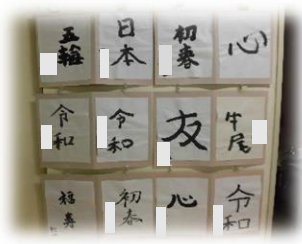 五輪
日本
初春
心
令和
令和
友
牛尾
福寿
初春
心
令和